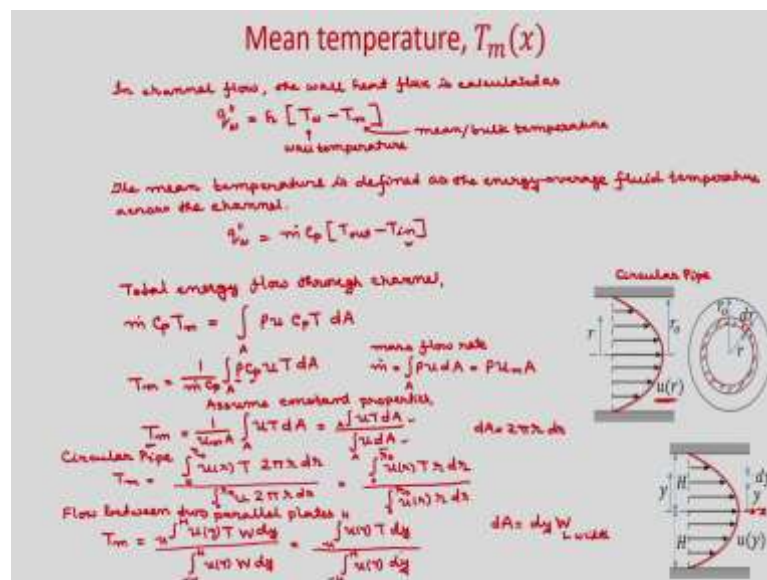 Mean temperature, T_m(x)
In channel flow, the wall heat flux is calculated as
q''_w = h [T_w - T_m]
mean/bulk temperature
wall temperature
The mean temperature is defined as the energy-average fluid temperature
across the channel.
q''_w = ṁ C_p [T_out - T_in]
Total energy flow through channel,
ṁ C_p T_m = ∫_A ρu C_p T dA
mass flow rate
T_m = 1/(ṁ C_p) ∫_A ρ C_p u T dA
ṁ = ∫_A ρu dA = ρ u_m A
Assume constant properties
T_m = 1/(u_m A) ∫_A uT dA = ∫_A uT dA / ∫_A u dA
dA = 2πr dr
Circular Pipe
T_m = ∫_0^{r_0} u(r) T 2πr dr / ∫_0^{r_0} u 2πr dr = ∫_0^{r_0} u(r) T r dr / ∫_0^{r_0} u(r) r dr
Flow between two parallel plates
T_m = ∫_{-H}^{H} u(y) T W dy / ∫_{-H}^{H} u(y) W dy = ∫_{-H}^{H} u(y) T dy / ∫_{-H}^{H} u(y) dy
dA = dy W
width
Circular Pipe
r
r_0
u(r)
r_0
dr
r
y
H
H
dy
y
x
u(y)